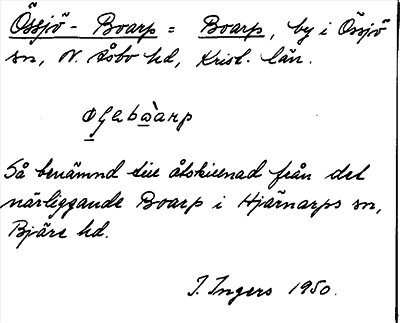 Össjö - Boarp = Boarp, by i Össjö
sn, N. Åsbo hd, Krist. län.
Så benämnd till åtskillnad från det
närliggande Boarp i Hjärnarps sn,
Bjäre hd.
I. Ingers 1950.